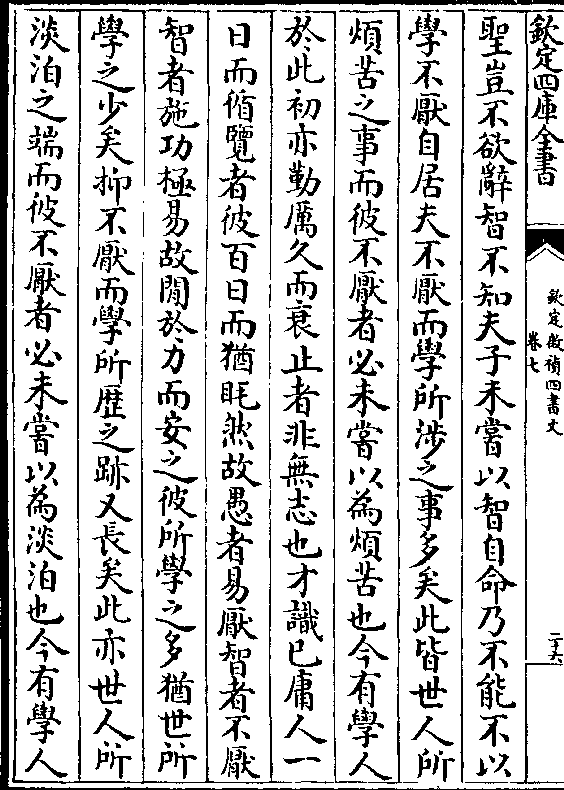 欽定四庫全書
欽定啟禎四書文
卷七
二十六
聖豈不欲辭智不知夫子未嘗以智自命乃不能不以
學不厭自居夫不厭而學所涉之事多矣此皆世人所
煩苦之事而彼不厭者必未嘗以為煩苦也今有學人
於此初亦勤厲久而衰止者非無志也才識已庸人一
日而循覽者彼百日而猶眊然故愚者易厭智者不厭
智者施功極易故閒於力而安之彼所學之多猶世所
學之少矣抑不厭而學所歴之跡又長矣此亦世人所
淡泊之端而彼不厭者必未嘗以為淡泊也今有學人